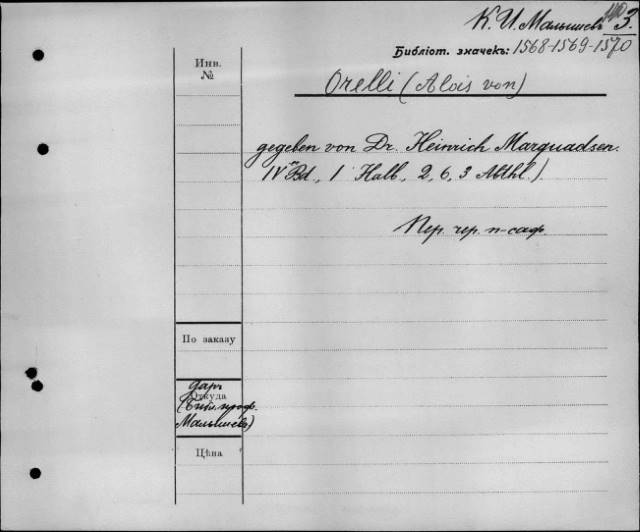 К. И. Малышевъ 3.
Библіот. значекъ: 1568-1569-1570
Инв.
№
Orelli (Alois von)
gegeben von Dr. Heinrich Marquadsen.
IV Bd., 1 Halb., 2, 6, 3 Abthl.).
Пер. чер. п-саф.
По заказу
даръ
Откуда
(Библ. проф.
Малышевъ)
Цѣна